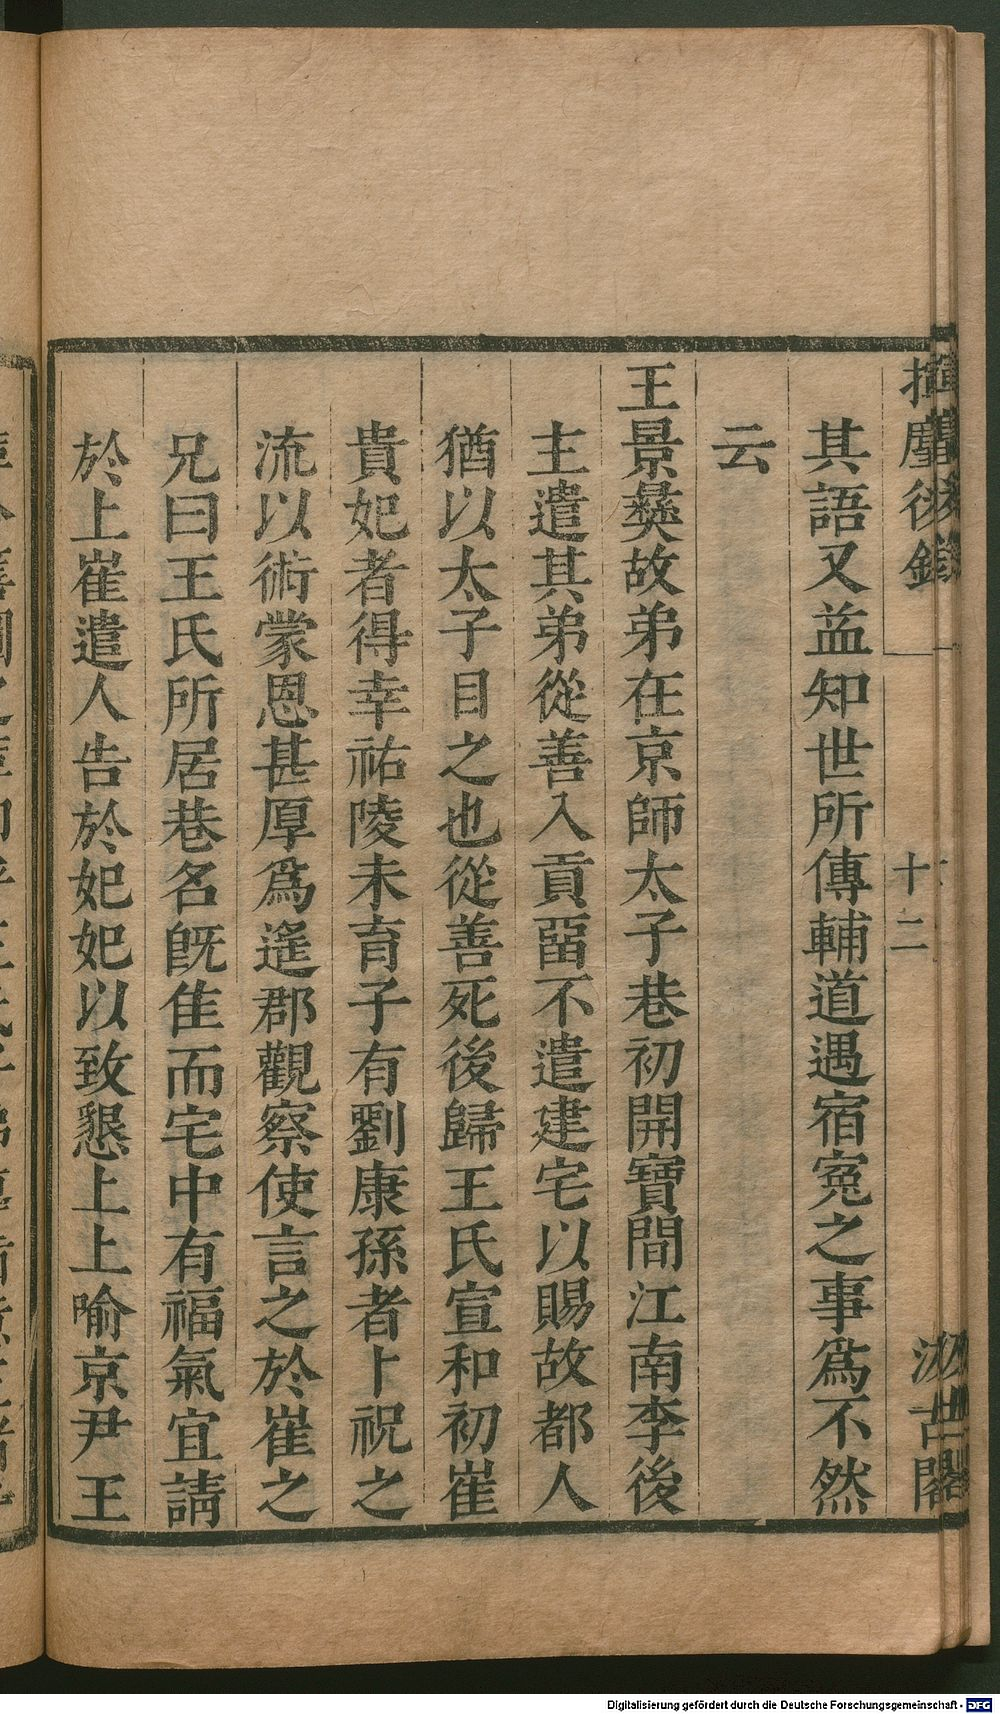 揮麈後錄
十二
汲古閣
其語又益知世所傳輔道遇宿冤之事爲不然
云
王景彝故弟在京師太子巷初開寶間江南李後
主遣其弟從善入貢畱不遣建宅以賜故都人
猶以太子目之也從善死後歸王氏宣和初崔
貴妃者得幸祐陵未育子有劉康孫者卜祝之
流以術蒙恩甚厚爲遙郡觀察使言之於崔之
兄曰王氏所居巷名旣隹而宅中有福氣宜請
於上崔遣人告於妃妃以致懇上上喻京尹王
Digitalisierung gefördert durch die Deutsche Forschungsgemeinschaft - DFG